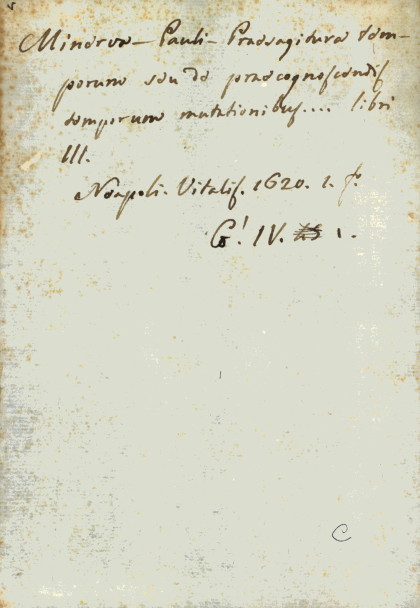 Minerva - Pauli - Praesagitura tem-
porum seu de praecognoscendis
temporum mutationibus.... libri
III.
Neapoli. Vitalis. 1620. 1. f.
G! IV. 1.
C